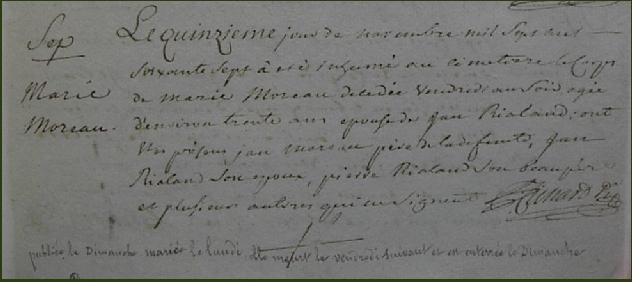 Sep
Marie
Moreau.
Le quinzieme jour de novembre mil sept cent
soixante sept à eté inhumé au cimetiere le Corps
de marie Moreau decedée Vendredi au Soir agée
d'environ trente ans epouse de jan Rialand; ont
été présens jan moreau père de la defunte, jan
Rialand Son epoux, pierre Rialand Son beaupère
et plusieurs autres qui ne Signent
publiée le Dimanche mariée le lundi. Elle meurt le vendredi suivant et est enterrée le Dimanche